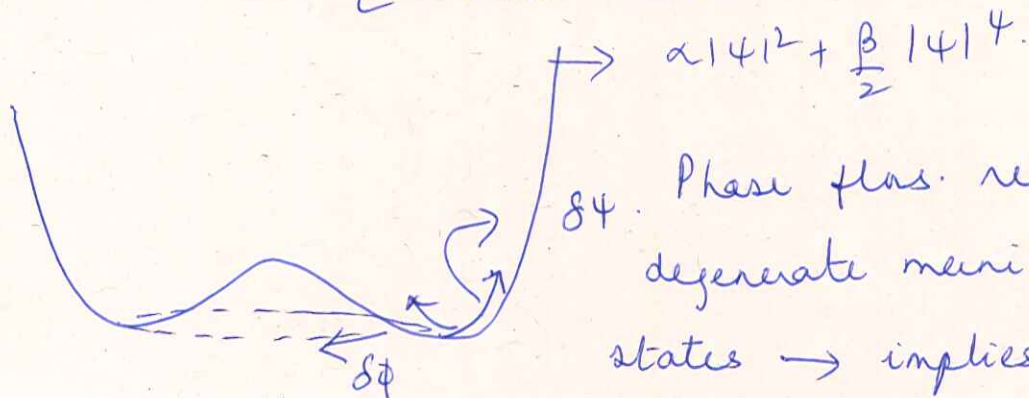 α|ψ|² + β/2 |ψ|⁴.
δψ. Phase flns. re
degenerate meini
states → implies
δϕ